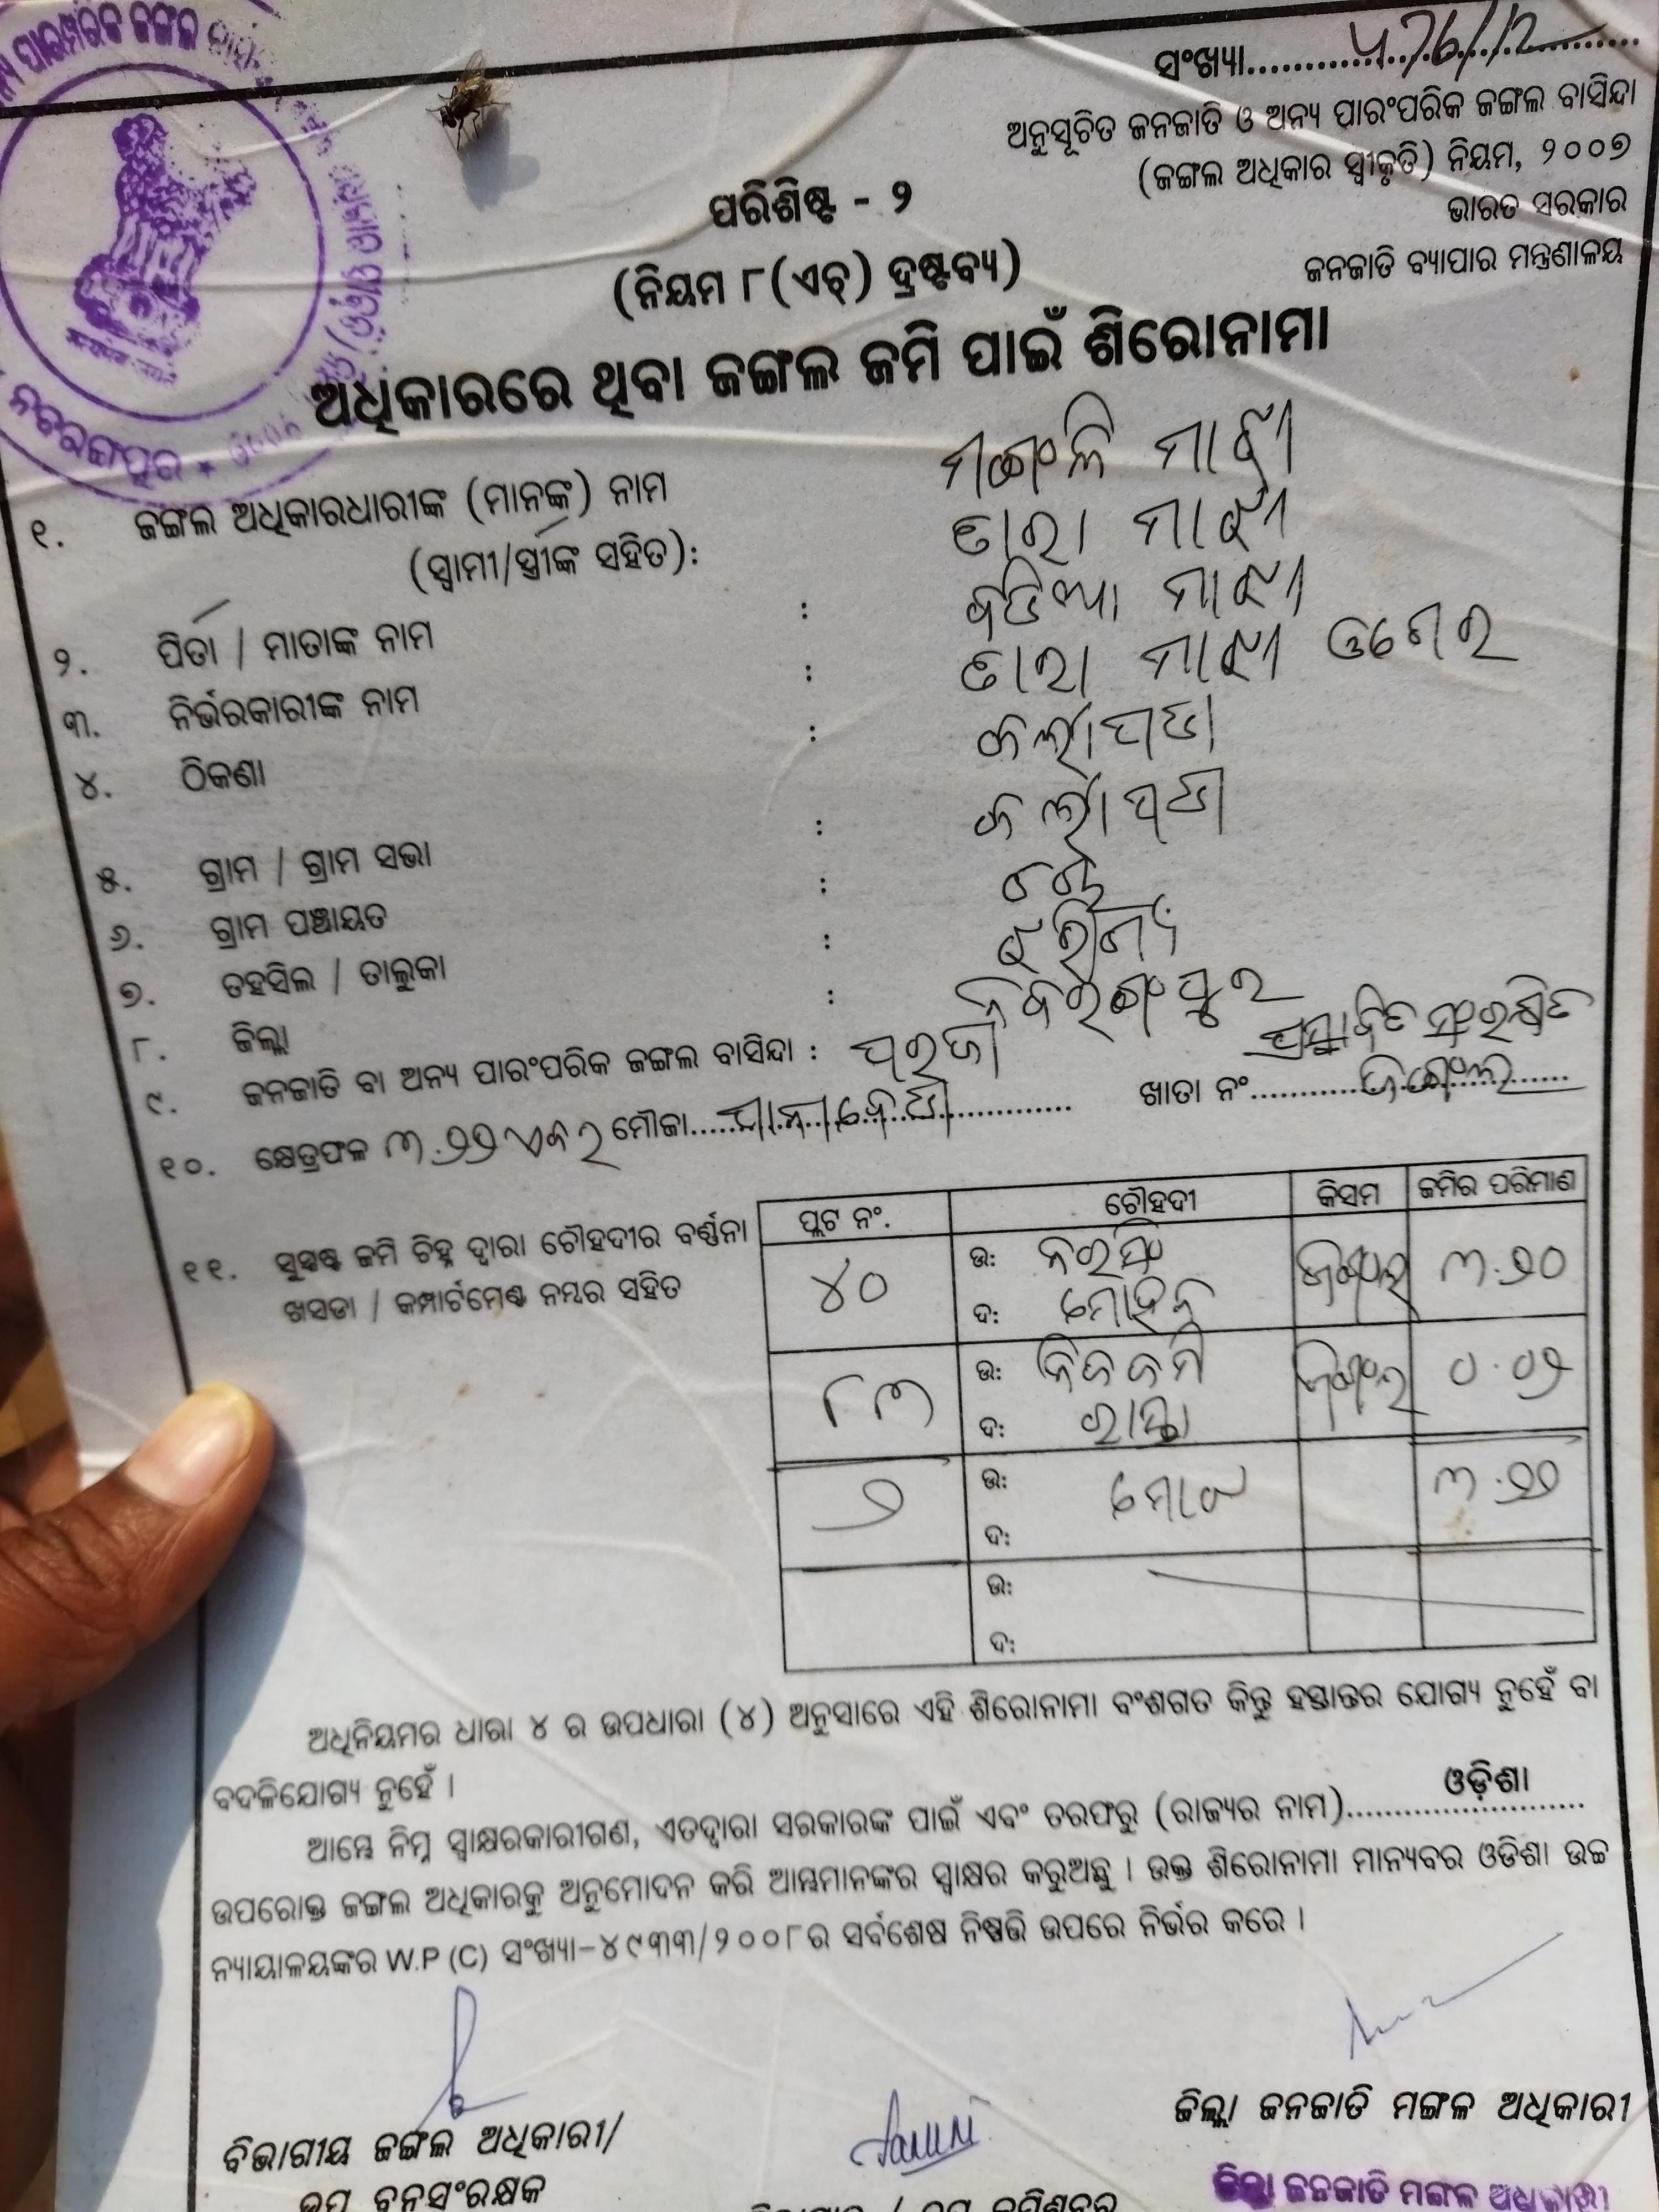 ସଂଖ୍ୟା
ଅନୁସୂଚିତ ଜନଜାତି ଓ ଅନ୍ୟ ପାରଂପରିକ ଜଙ୍ଗଲ ବାସିନ୍ଦା
(ଜଙ୍ଗଲ ଅଧିକାର ସ୍ୱୀକୃତି) ନିୟମ, ୨୦୦୭
ଭାରତ ସରକାର
ଜନଜାତି ବ୍ୟାପାର ମନ୍ତ୍ରଣାଳୟ
ପରିଶିଷ୍ଟ - ୨
(ନିୟମ ୮(ଏଚ୍) ଦ୍ରଷ୍ଟବ୍ୟ)
ଅଧିକାରରେ ଥିବା ଜଙ୍ଗଲ ଜମି ପାଇଁ ଶିରୋନାମା
୧. ଜଙ୍ଗଲ ଅଧିକାରଧାରୀଙ୍କ (ମାନଙ୍କ) ନାମ ମାଝୀ
(ସ୍ୱାମୀ/ସ୍ତ୍ରୀଙ୍କ ସହିତ): ତାରା ମାଝୀ
୨. ପିତା / ମାତାଙ୍କ ନାମ : ମାଝୀ
୩. ନିର୍ଭରକାରୀଙ୍କ ନାମ : ତାରା ମାଝୀ
୪. ଠିକଣା :
୫. ଗ୍ରାମ / ଗ୍ରାମ ସଭା :
୬. ଗ୍ରାମ ପଞ୍ଚାୟତ :
୭. ତହସିଲ / ତାଲୁକା :
୮. ଜିଲ୍ଲା : ନବରଂଗପୁର
୯. ଜନଜାତି ବା ଅନ୍ୟ ପାରଂପରିକ ଜଙ୍ଗଲ ବାସିନ୍ଦା : ପରଜା
୧୦. କ୍ଷେତ୍ରଫଳ ୩.୨୨ ଏକର ମୌଜା ଖାତା ନଂ ପ୍ରସ୍ତାବିତ ସଂରକ୍ଷିତ ଜଂଗଲ
୧୧. ସୁସ୍ପଷ୍ଟ ଜମି ଚିହ୍ନ ଦ୍ୱାରା ଚୌହଦୀର ବର୍ଣ୍ଣନା
ଖସଡା / କମ୍ପାର୍ଟମେଣ୍ଟ ନମ୍ବର ସହିତ
ପ୍ଲଟ ନଂ. ଚୌହଦୀ କିସମ ଜମିର ପରିମାଣ
୪୦ ଉ: ନରସିଂ ଜଂଗଲ ୩.୨୦
ଦ:
୮୩ ଉ: ନିଜ ଜମି ଜଂଗଲ ୦.୦୨
ଦ: ରାସ୍ତା
୨ ଉ: ମୋଟ ୩.୨୨
ଦ:
ଉ:
ଦ:
ଅଧିନିୟମର ଧାରା ୪ ର ଉପଧାରା (୪) ଅନୁସାରେ ଏହି ଶିରୋନାମା ବଂଶଗତ କିନ୍ତୁ ହସ୍ତାନ୍ତର ଯୋଗ୍ୟ ନୁହେଁ ବା
ବଦଳିଯୋଗ୍ୟ ନୁହେଁ ।
ଆମ୍ଭେ ନିମ୍ନ ସ୍ୱାକ୍ଷରକାରୀଗଣ, ଏତଦ୍ୱାରା ସରକାରଙ୍କ ପାଇଁ ଏବଂ ତରଫରୁ (ରାଜ୍ୟର ନାମ) ଓଡ଼ିଶା
ଉପରୋକ୍ତ ଜଙ୍ଗଲ ଅଧିକାରକୁ ଅନୁମୋଦନ କରି ଆମ୍ଭମାନଙ୍କର ସ୍ୱାକ୍ଷର କରୁଅଛୁ । ଉକ୍ତ ଶିରୋନାମା ମାନ୍ୟବର ଓଡିଶା ଉଚ୍ଚ
ନ୍ୟାୟାଳୟଙ୍କର W.P (C) ସଂଖ୍ୟା-୪୯୩୩/୨୦୦୮ର ସର୍ବଶେଷ ନିଷ୍ପତ୍ତି ଉପରେ ନିର୍ଭର କରେ ।
ଜିଲ୍ଲା ଜନଜାତି ମଙ୍ଗଳ ଅଧିକାରୀ
ବିଭାଗୀୟ ଜଙ୍ଗଲ ଅଧିକାରୀ/
ଉପ ବନସଂରକ୍ଷକ
ଜିଲ୍ଲା ଜନଜାତି ମଙ୍ଗଳ ଅଧିକାରୀ